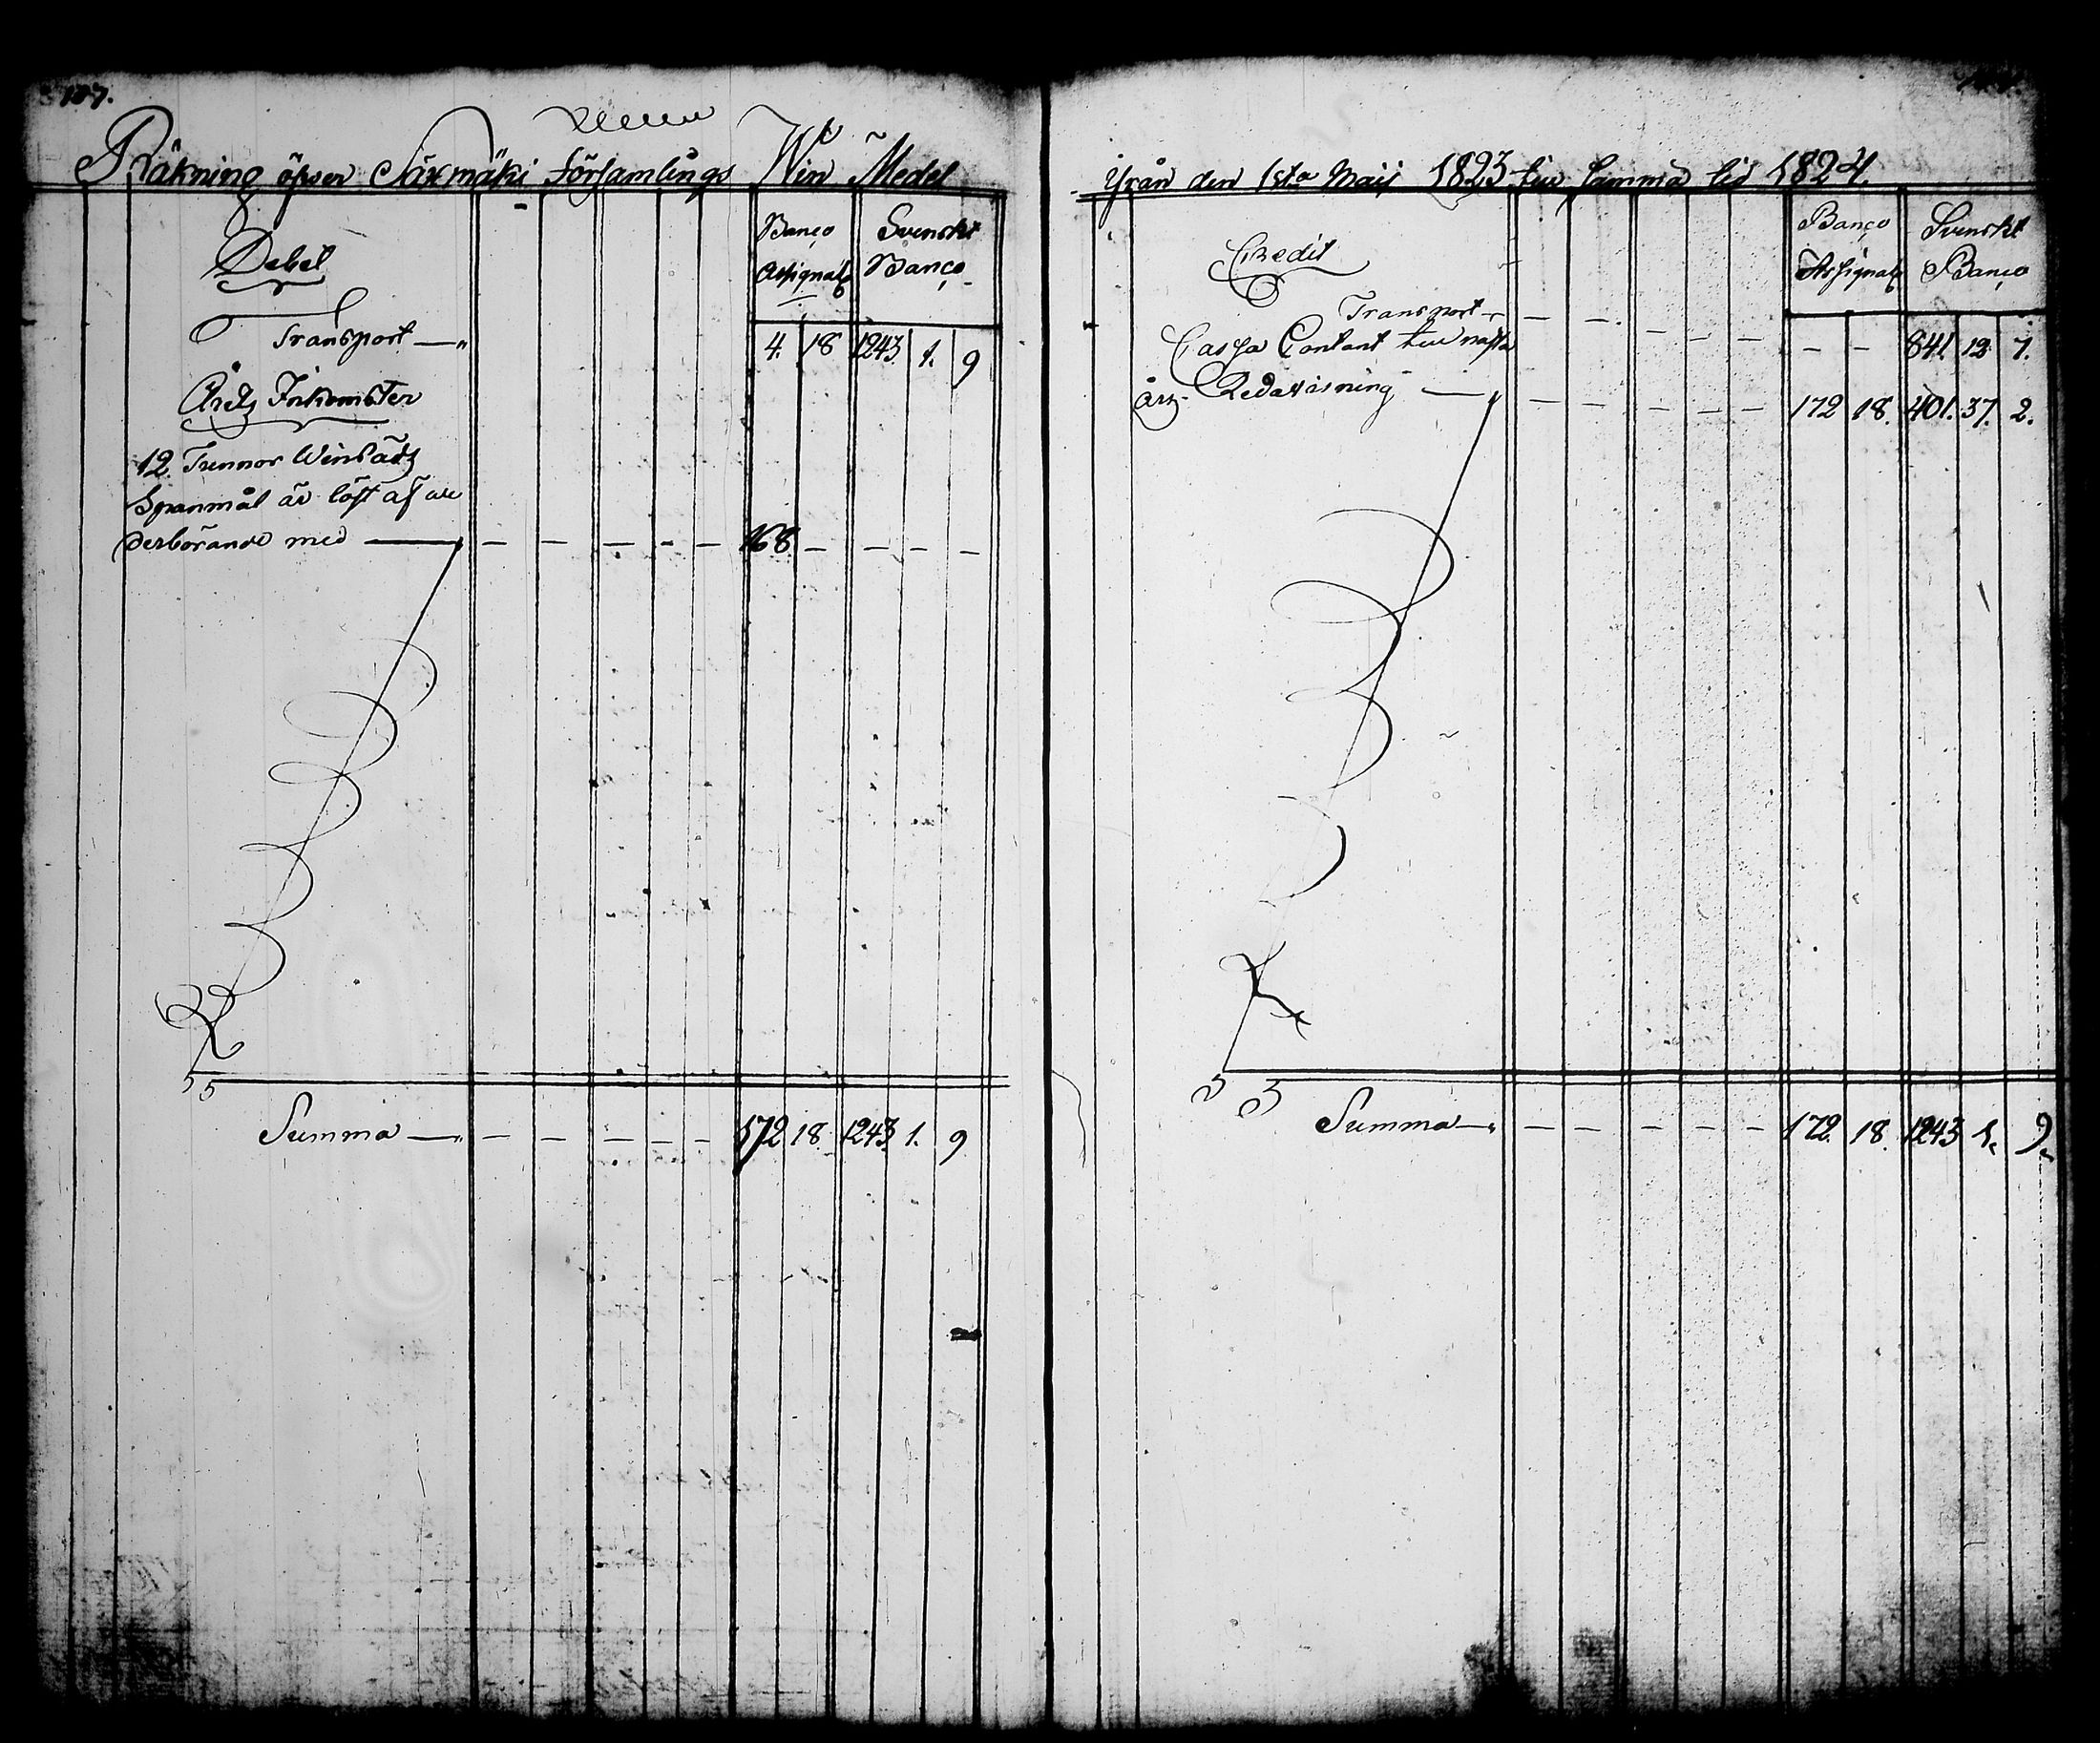 107.
Räkning öfver Säxmäki Församlings Win Medel
Debet
Banco Assignat
Svenskt Banco
Transport — 4. 18 1243 1. 9
Årets Inkomster
12 Tunnor Winsädz
Spanmål är löst af ve
derbörande med — — — — — — 168 — — — —
Summa — — — — — — 172 18. 1243 1. 9
Från den 1sta Maij 1823 till samma tid 1824.
Credit
Banco Assignat
Svenskt Banco
Transport — — — — — — — — 841. 12 7.
Cassa Contant till nästa
Års Redovisning — — — — — — 172 18. 401. 37. 2.
Summa — — — — — — 172. 18. 1243 1. 9.